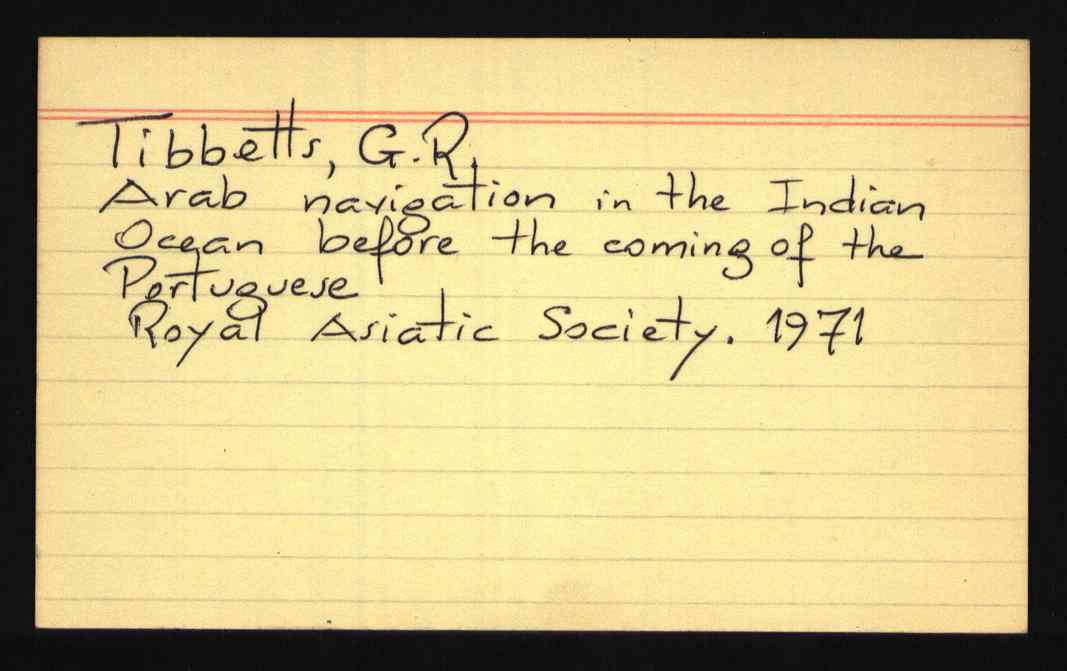 Tibbetts, G.R.
Arab navigation in the Indian
Ocean before the coming of the
Portuguese
Royal Asiatic Society. 1971